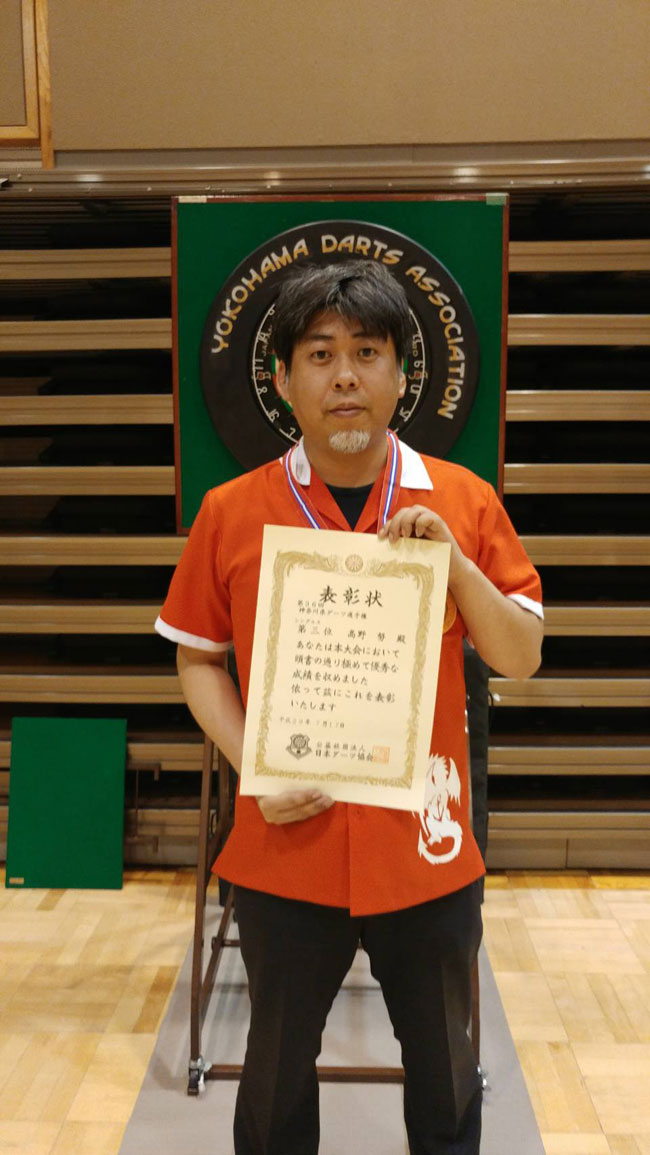 YOKOHAMA DARTS ASSOCIATION
表彰状
第36回
神奈川県ダーツ選手権
シングルス
第三位 高野 努 殿
あなたは本大会において
頭書の通り極めて優秀な
成績を収めました
依って茲にこれを表彰
いたします
公益社団法人
日本ダーツ協会